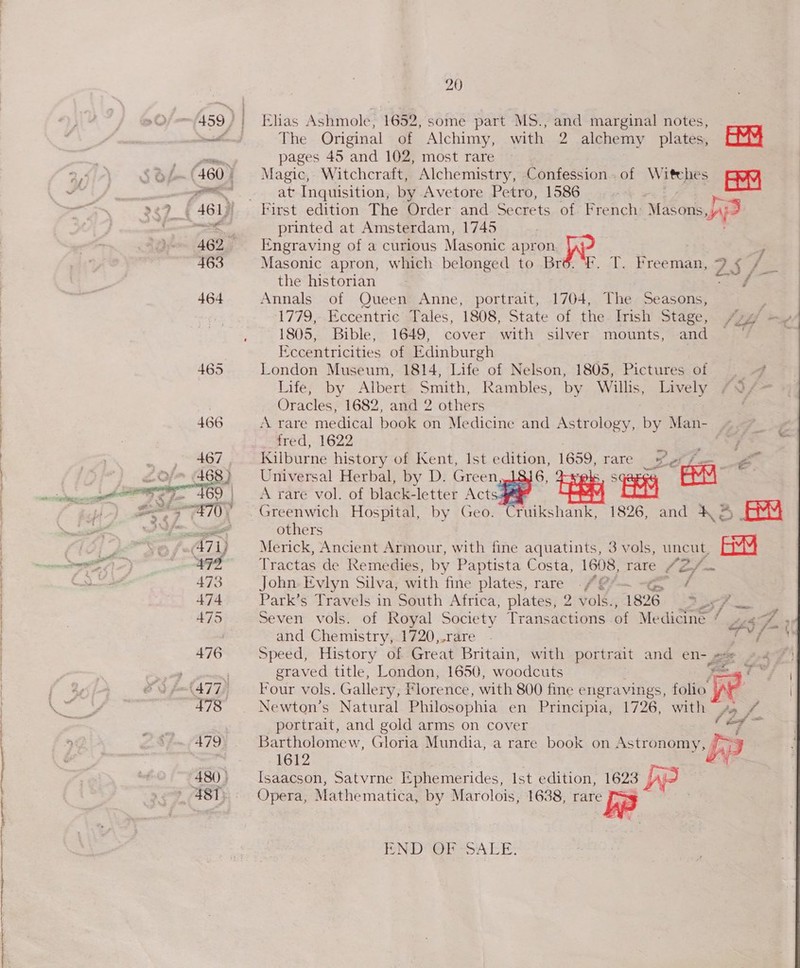 20
459 Elias Ashmole, 1652, some part MS., and marginal notes,
The Original of Alchimy, with 2 alchemy plates,
pages 45 and 102, most rare
460 Magic, Witchcraft, Alchemistry, Confession of Witches
at Inquisition, by Avetore Petro, 1586
461 First edition The Order and Secrets of French Masons,
printed at Amsterdam, 1745
462 Engraving of a curious Masonic apron
463 Masonic apron, which belonged to Bro. F. T. Freeman,
the historian
464 Annals of Queen Anne, portrait, 1704, The Seasons,
1779, Eccentric Tales, 1808, State of the Irish Stage,
1805, Bible, 1649, cover with silver mounts, and
Eccentricities of Edinburgh
465 London Museum, 1814, Life of Nelson, 1805, Pictures of
Life, by Albert Smith, Rambles, by Willis, Lively
Oracles, 1682, and 2 others
466 A rare medical book on Medicine and Astrology, by Man-
fred, 1622
467 Kilburne history of Kent, 1st edition, 1659, rare
468 Universal Herbal, by D. Green, 1816, 2 vols, scarce
469 A rare vol. of black-letter Acts
470 Greenwich Hospital, by Geo. Cruikshank, 1826, and
others
471 Merick, Ancient Armour, with fine aquatints, 3 vols, uncut
472 Tractas de Remedies, by Paptista Costa, 1608, rare
473 John Evlyn Silva, with fine plates, rare
474 Park's Travels in South Africa, plates, 2 vols., 1826
475 Seven vols. of Royal Society Transactions of Medicine
and Chemistry, 1720, rare
476 Speed, History of Great Britain, with portrait and en-
graved title, London, 1650, woodcuts
477 Four vols. Gallery, Florence, with 800 fine engravings, folio
478 Newton's Natural Philosophia en Principia, 1726, with
portrait, and gold arms on cover
479 Bartholomew, Gloria Mundia, a rare book on Astronomy,
1612
480 Isaacson, Satvrne Ephemerides, 1st edition, 1623
481 Opera, Mathematica, by Marolois, 1638, rare
END OF SALE.